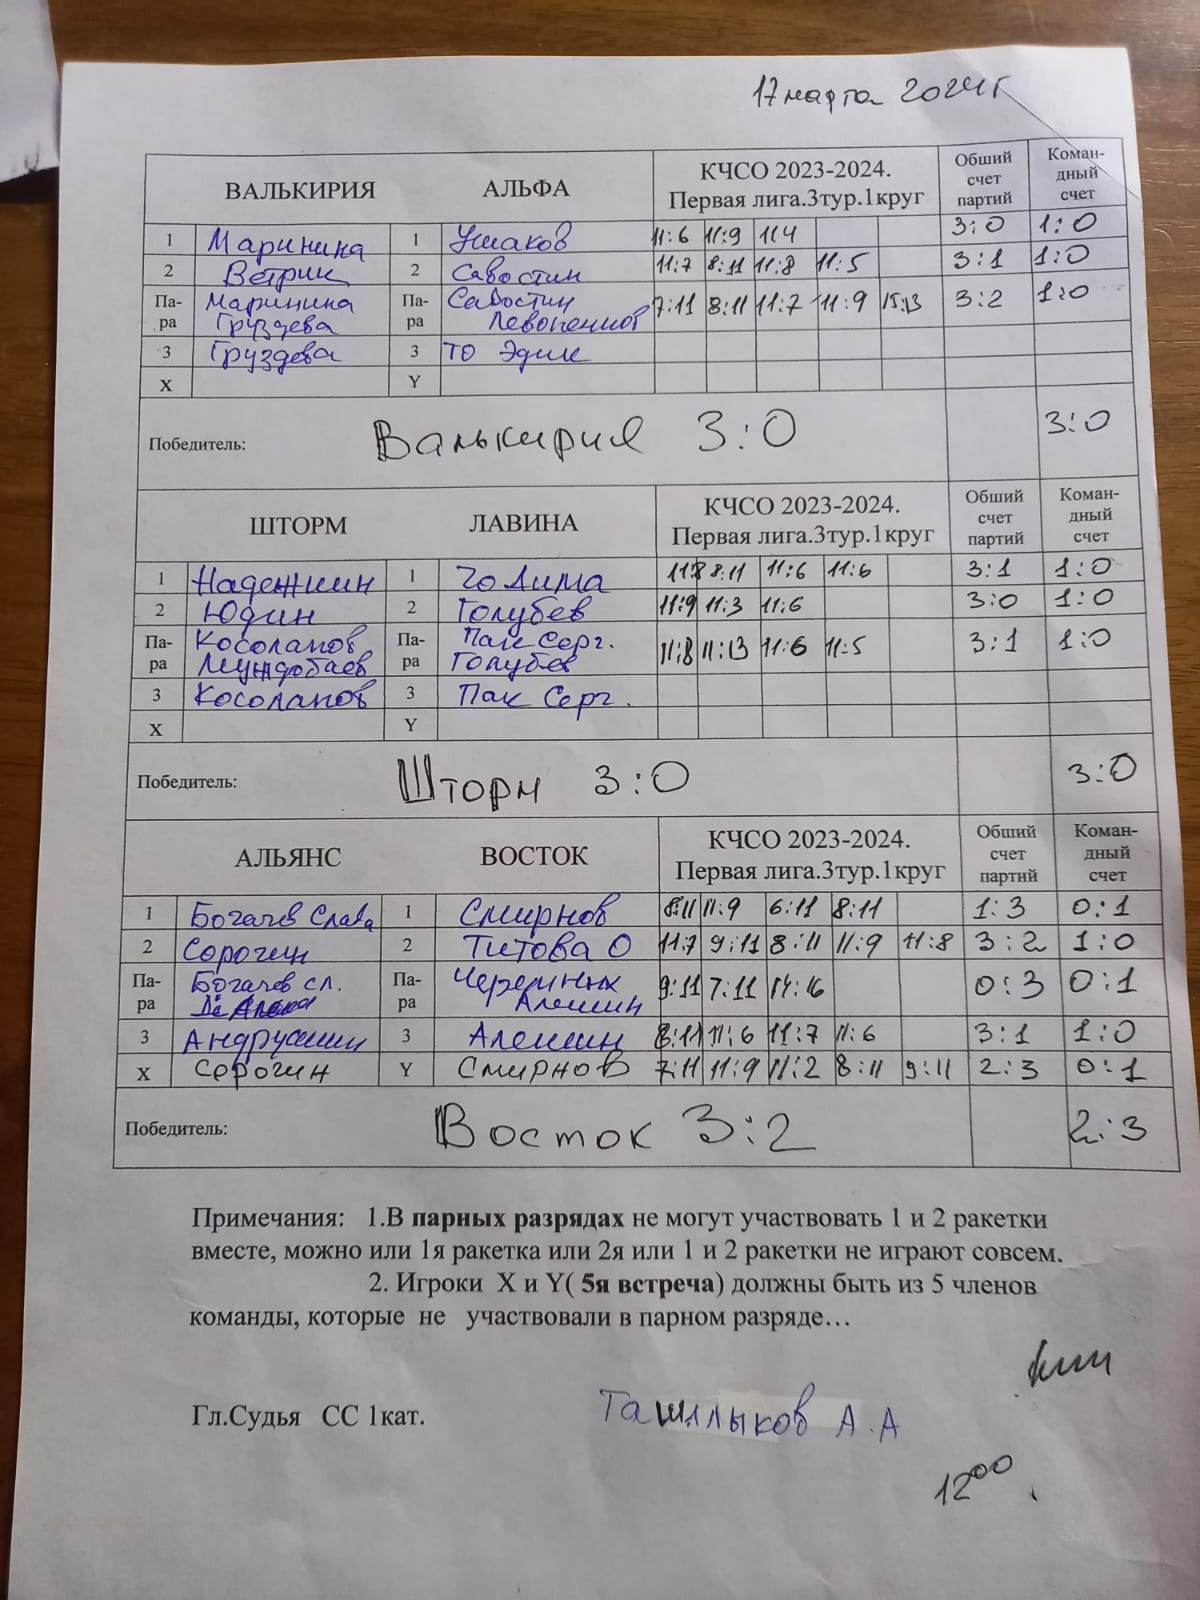 17 марта 2024г
ВАЛЬКИРИЯ АЛЬФА КЧСО 2023-2024. Первая лига.3тур.1круг Обший счет партий Коман-дный счет
1 Маринина 1 Ушаков 11:6 11:9 11:4 3:0 1:0
2 Ветрик 2 Савостин 11:7 8:11 11:8 11:5 3:1 1:0
Па-ра Маринина Груздева Па-ра Савостин 7:11 8:11 11:7 11:9 15:13 3:2 1:0
3 Груздева 3 ТО Эдик
X Y
Победитель: Валькирия 3:0 3:0
ШТОРМ ЛАВИНА КЧСО 2023-2024. Первая лига.3тур.1круг Обший счет партий Коман-дный счет
1 Надежкин 1 Чо Дима 11:8 8:11 11:6 11:6 3:1 1:0
2 Юдин 2 Голубев 11:9 11:3 11:6 3:0 1:0
Па-ра Косолапов Па-ра Пак Серг. Голубев 11:8 11:13 11:6 11:5 3:1 1:0
3 Косолапов 3 Пак Серг.
X Y
Победитель: Шторм 3:0 3:0
АЛЬЯНС ВОСТОК КЧСО 2023-2024. Первая лига.3тур.1круг Обший счет партий Коман-дный счет
1 Богачев Слава 1 Смирнов 8:11 11:9 6:11 8:11 1:3 0:1
2 Сорогин 2 Титова О 11:7 9:11 8:11 11:9 11:8 3:2 1:0
Па-ра Богачев сл. Па-ра Черемных Алешин 9:11 7:11 14:16 0:3 0:1
3 Андрюшин 3 Алешин 8:11 11:6 11:7 11:6 3:1 1:0
X Сорогин Y Смирнов 7:11 11:9 11:2 8:11 9:11 2:3 0:1
Победитель: Восток 3:2 2:3
Примечания: 1.В парных разрядах не могут участвовать 1 и 2 ракетки
вместе, можно или 1я ракетка или 2я или 1 и 2 ракетки не играют совсем.
2. Игроки X и Y( 5я встреча) должны быть из 5 членов
команды, которые не участвовали в парном разряде…
Гл.Судья СС 1кат. Ташлыков А.А
12⁰⁰